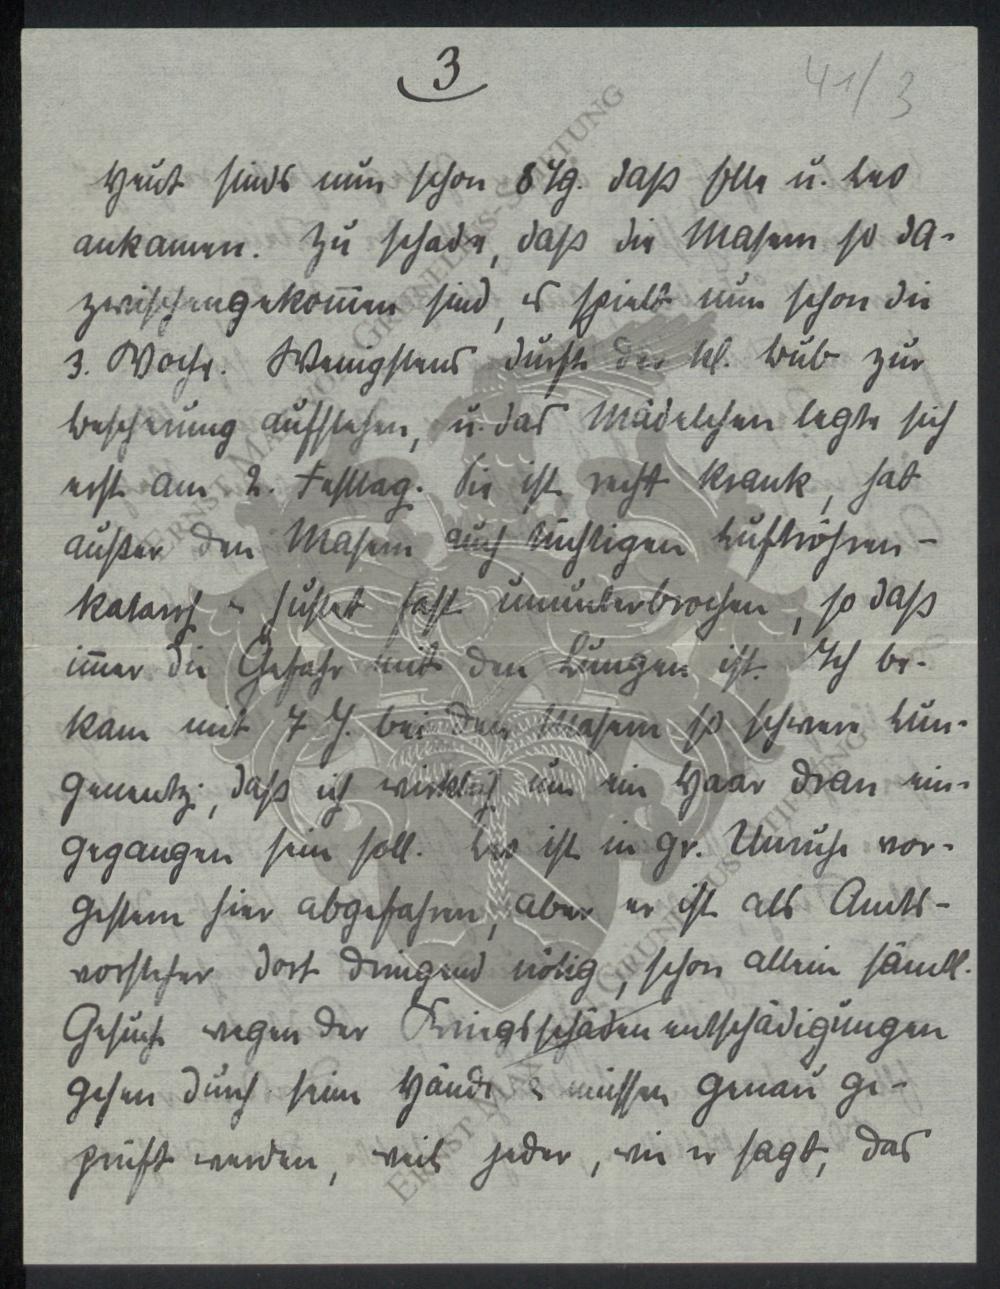 3
41/3
Heut sinds nun schon 8 Tg. daß Elle u. Leo
ankamen. Zu schade, daß die Masern so da-
zwischengekom̅en sind, es spielt nun schon die
3. Woche. Wenigstens durfte der kl. Bub zur
Bescherung aufstehen, u. das Mädelchen legte sich
erst am 2. Festtag. Sie ist recht krank, hat
außer den Masern auch tüchtigen Luftröhren-
katarrh u. hustet fast ununterbrochen, so daß
im̅er die Gefahr mit den Lungen ist. Ich be-
kam mit 7 J. bei den Masern so schwere Lun-
genentz., daß ich wirklich um ein Haar dran ein-
gegangen sein soll. Leo ist in gr. Unruhe vor-
gestern hier abgefahren, aber er ist als Amts-
vorsteher dort dringend nötig, schon allein sämtl.
Gesuche wegen der Kriegsschäden entschädigungen
gehen durch seine Hände u. müssen genau ge-
prüft werden, weil jeder, wie er sagt, das
ERNST MAX VON GRUNELIUS-STIFTUNG
ERNST MAX VON GRUNELIUS-STIFTUNG